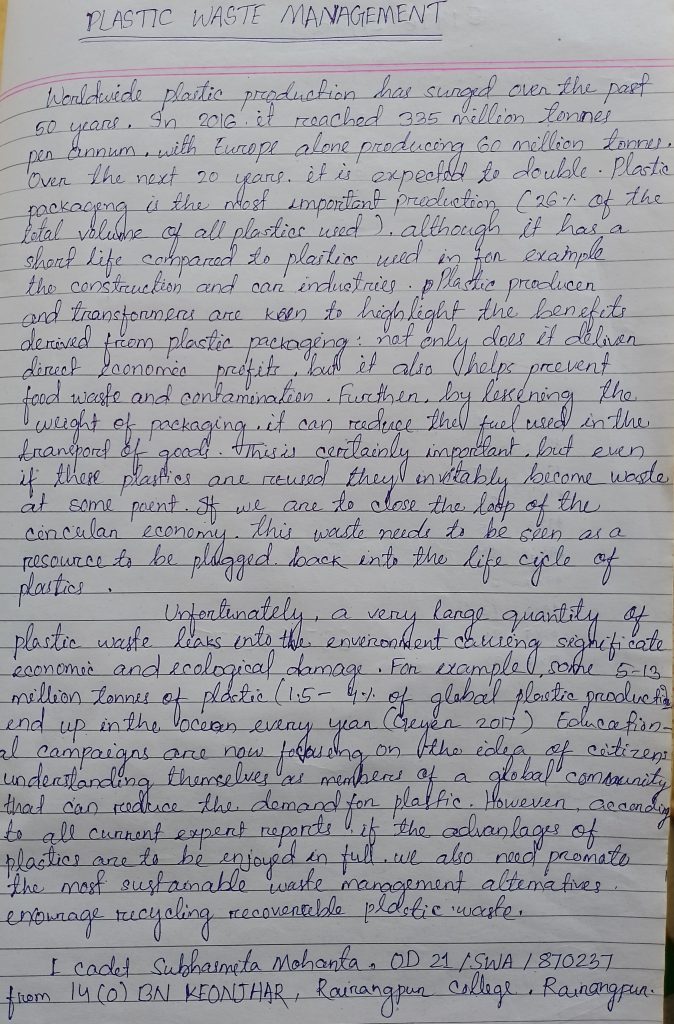 PLASTIC WASTE MANAGEMENT
Worldwide plastic production has surged over the past
50 years. In 2016 it reached 335 million tonnes
per annum, with Europe alone producing 60 million tonnes.
Over the next 20 years. it is expected to double. Plastic
packageng is the most important production (26% of the
total volume of all plastics used). although it has a
short life compared to plastics used in for example
the construction and car industries. Plastic producer
and transformers are keen to highlight the benefits
derived from plastic packaging: not only does it deliver
direct economic profits, but it also helps prevent
food waste and contamination. Further, by lessening the
weight of packaging. it can reduce the fuel used in the
transpord of goods. This is certainly important, but even
if these plastics are reused they invitably become waste
at some point. If we are to close the loop of the
circular economy, this waste needs to be seen as a
resource to be plugged back into the life cycle of
plastics.
Unfortunately, a very large quantity of
plastic waste leaks into the environment causing significate
economic and ecological damage. For example, some 5-13
million tonnes of plastic (1.5- 4% of global plastic production
end up in the ocean every year (Geyer 2017) Education-
al campaigns are now focusing on the idea of citizens
understanding themselves as members of a global community
that can reduce the demand for plastic. However, according
to all current expert reports, if the advantages of
plastics are to be enjoyed in full. we also need promote
the most sustainable waste management alternatives.
enourage recycling recoverable plastic waste.
I cadet Subhasmeta Mohanta, OD 21 /SWA / 870237
from 14 (O) BN KEONJHAR, Rairangpur College. Rairangpur.